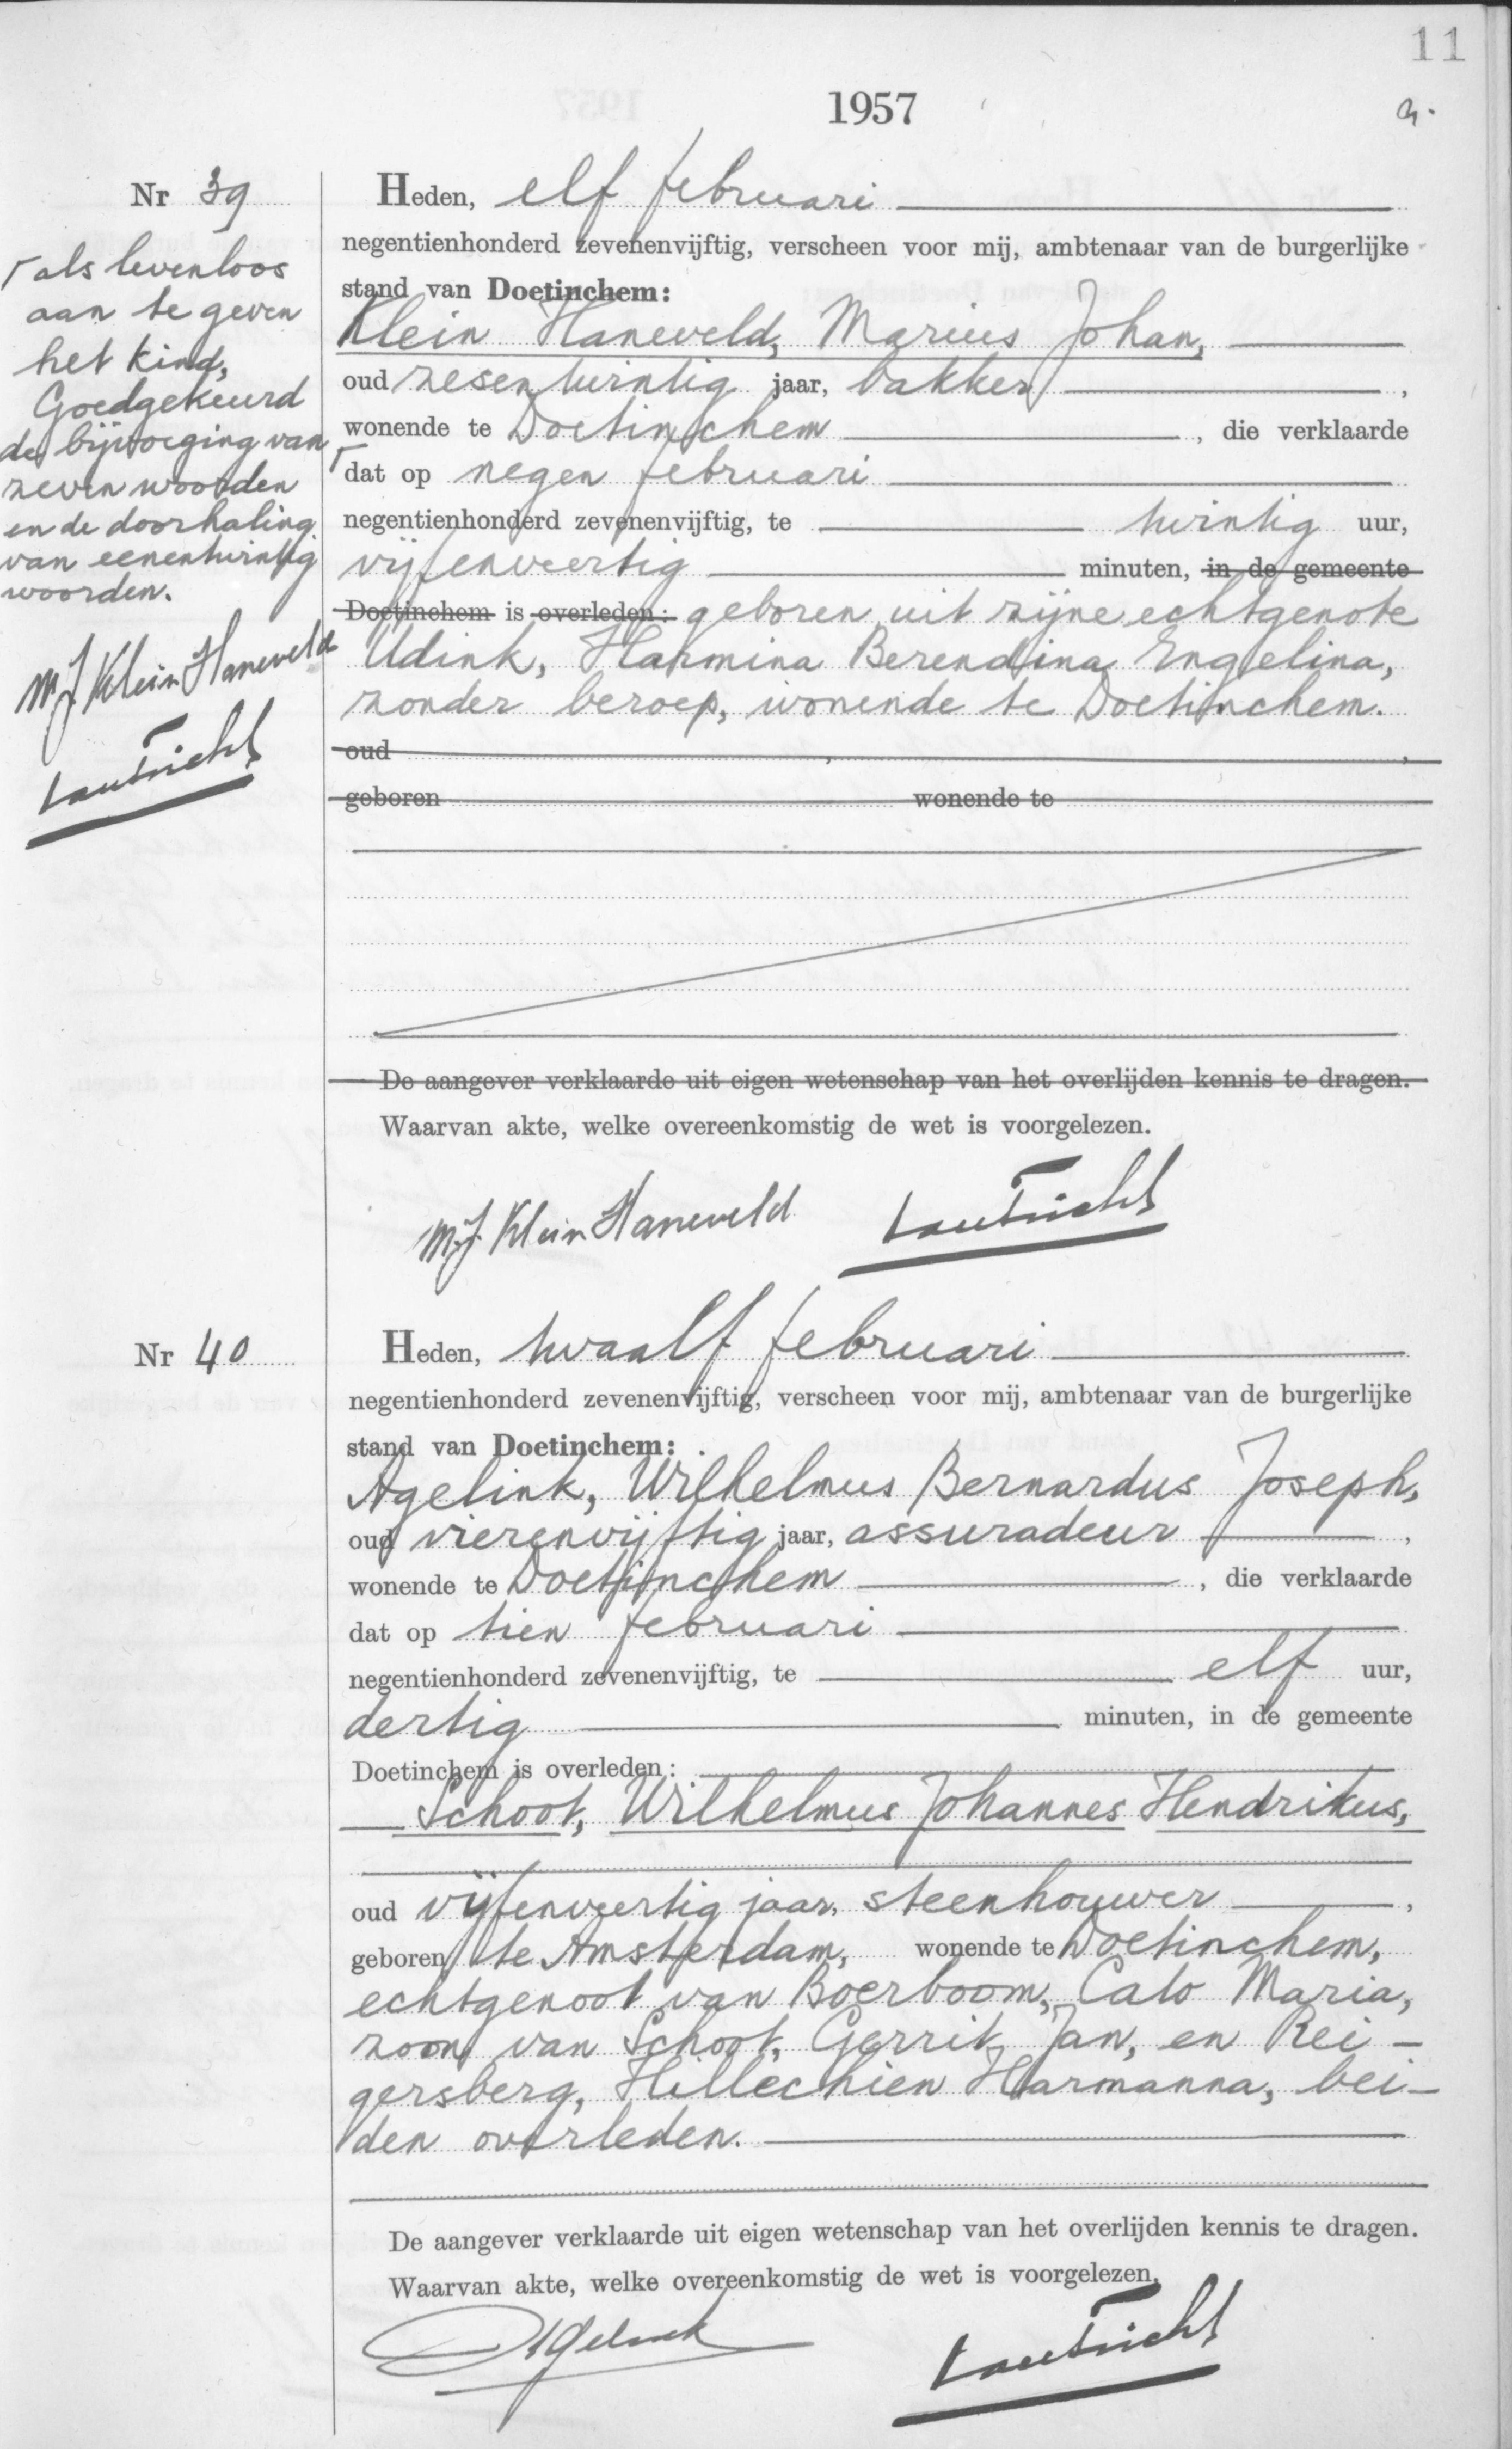 11
1957
a.
Nr 39
⌈als levenloos
aan te geven
het kind,
Goedgekeurd
de bijvoeging van
zeven woorden
en de doorhaling
van eenentwintig
woorden.
M J Klein Haneveld
Heden, elf februari
negentienhonderd zevenenvijftig, verscheen voor mij, ambtenaar van de burgerlijke
stand van Doetinchem:
Klein Haneveld, Marius Johan,
oud zesentwintig jaar, bakker,
wonende te Doetinchem, die verklaarde
⌈dat op negen februari
negentienhonderd zevenenvijftig, te twintig uur,
vijfenveertig minuten, in de gemeente
Doetinchem is overleden: geboren uit zijne echtgenote
Udink, Harmina Berendina Engelina,
zonder beroep, wonende te Doetinchem.
oud ,
geboren wonende te
De aangever verklaarde uit eigen wetenschap van het overlijden kennis te dragen.
Waarvan akte, welke overeenkomstig de wet is voorgelezen.
M.J. Klein Haneveld
Nr 40
Heden, twaalf februari
negentienhonderd zevenenvijftig, verscheen voor mij, ambtenaar van de burgerlijke
stand van Doetinchem:
Agelink, Wilhelmus Bernardus Joseph,
oud vierenvijftig jaar, assuradeur,
wonende te Doetinchem, die verklaarde
dat op tien februari
negentienhonderd zevenenvijftig, te elf uur,
dertig minuten, in de gemeente
Doetinchem is overleden:
Schoot, Wilhelmus Johannes Hendrikus,
oud vijfenveertig jaar, steenhouwer,
geboren te Amsterdam, wonende te Doetinchem,
echtgenoot van Boerboom, Cato Maria,
zoon van Schoot, Gerrit Jan, en Rei-
gersberg, Hillechien Harmanna, bei-
den overleden.
De aangever verklaarde uit eigen wetenschap van het overlijden kennis te dragen.
Waarvan akte, welke overeenkomstig de wet is voorgelezen.
Agelink